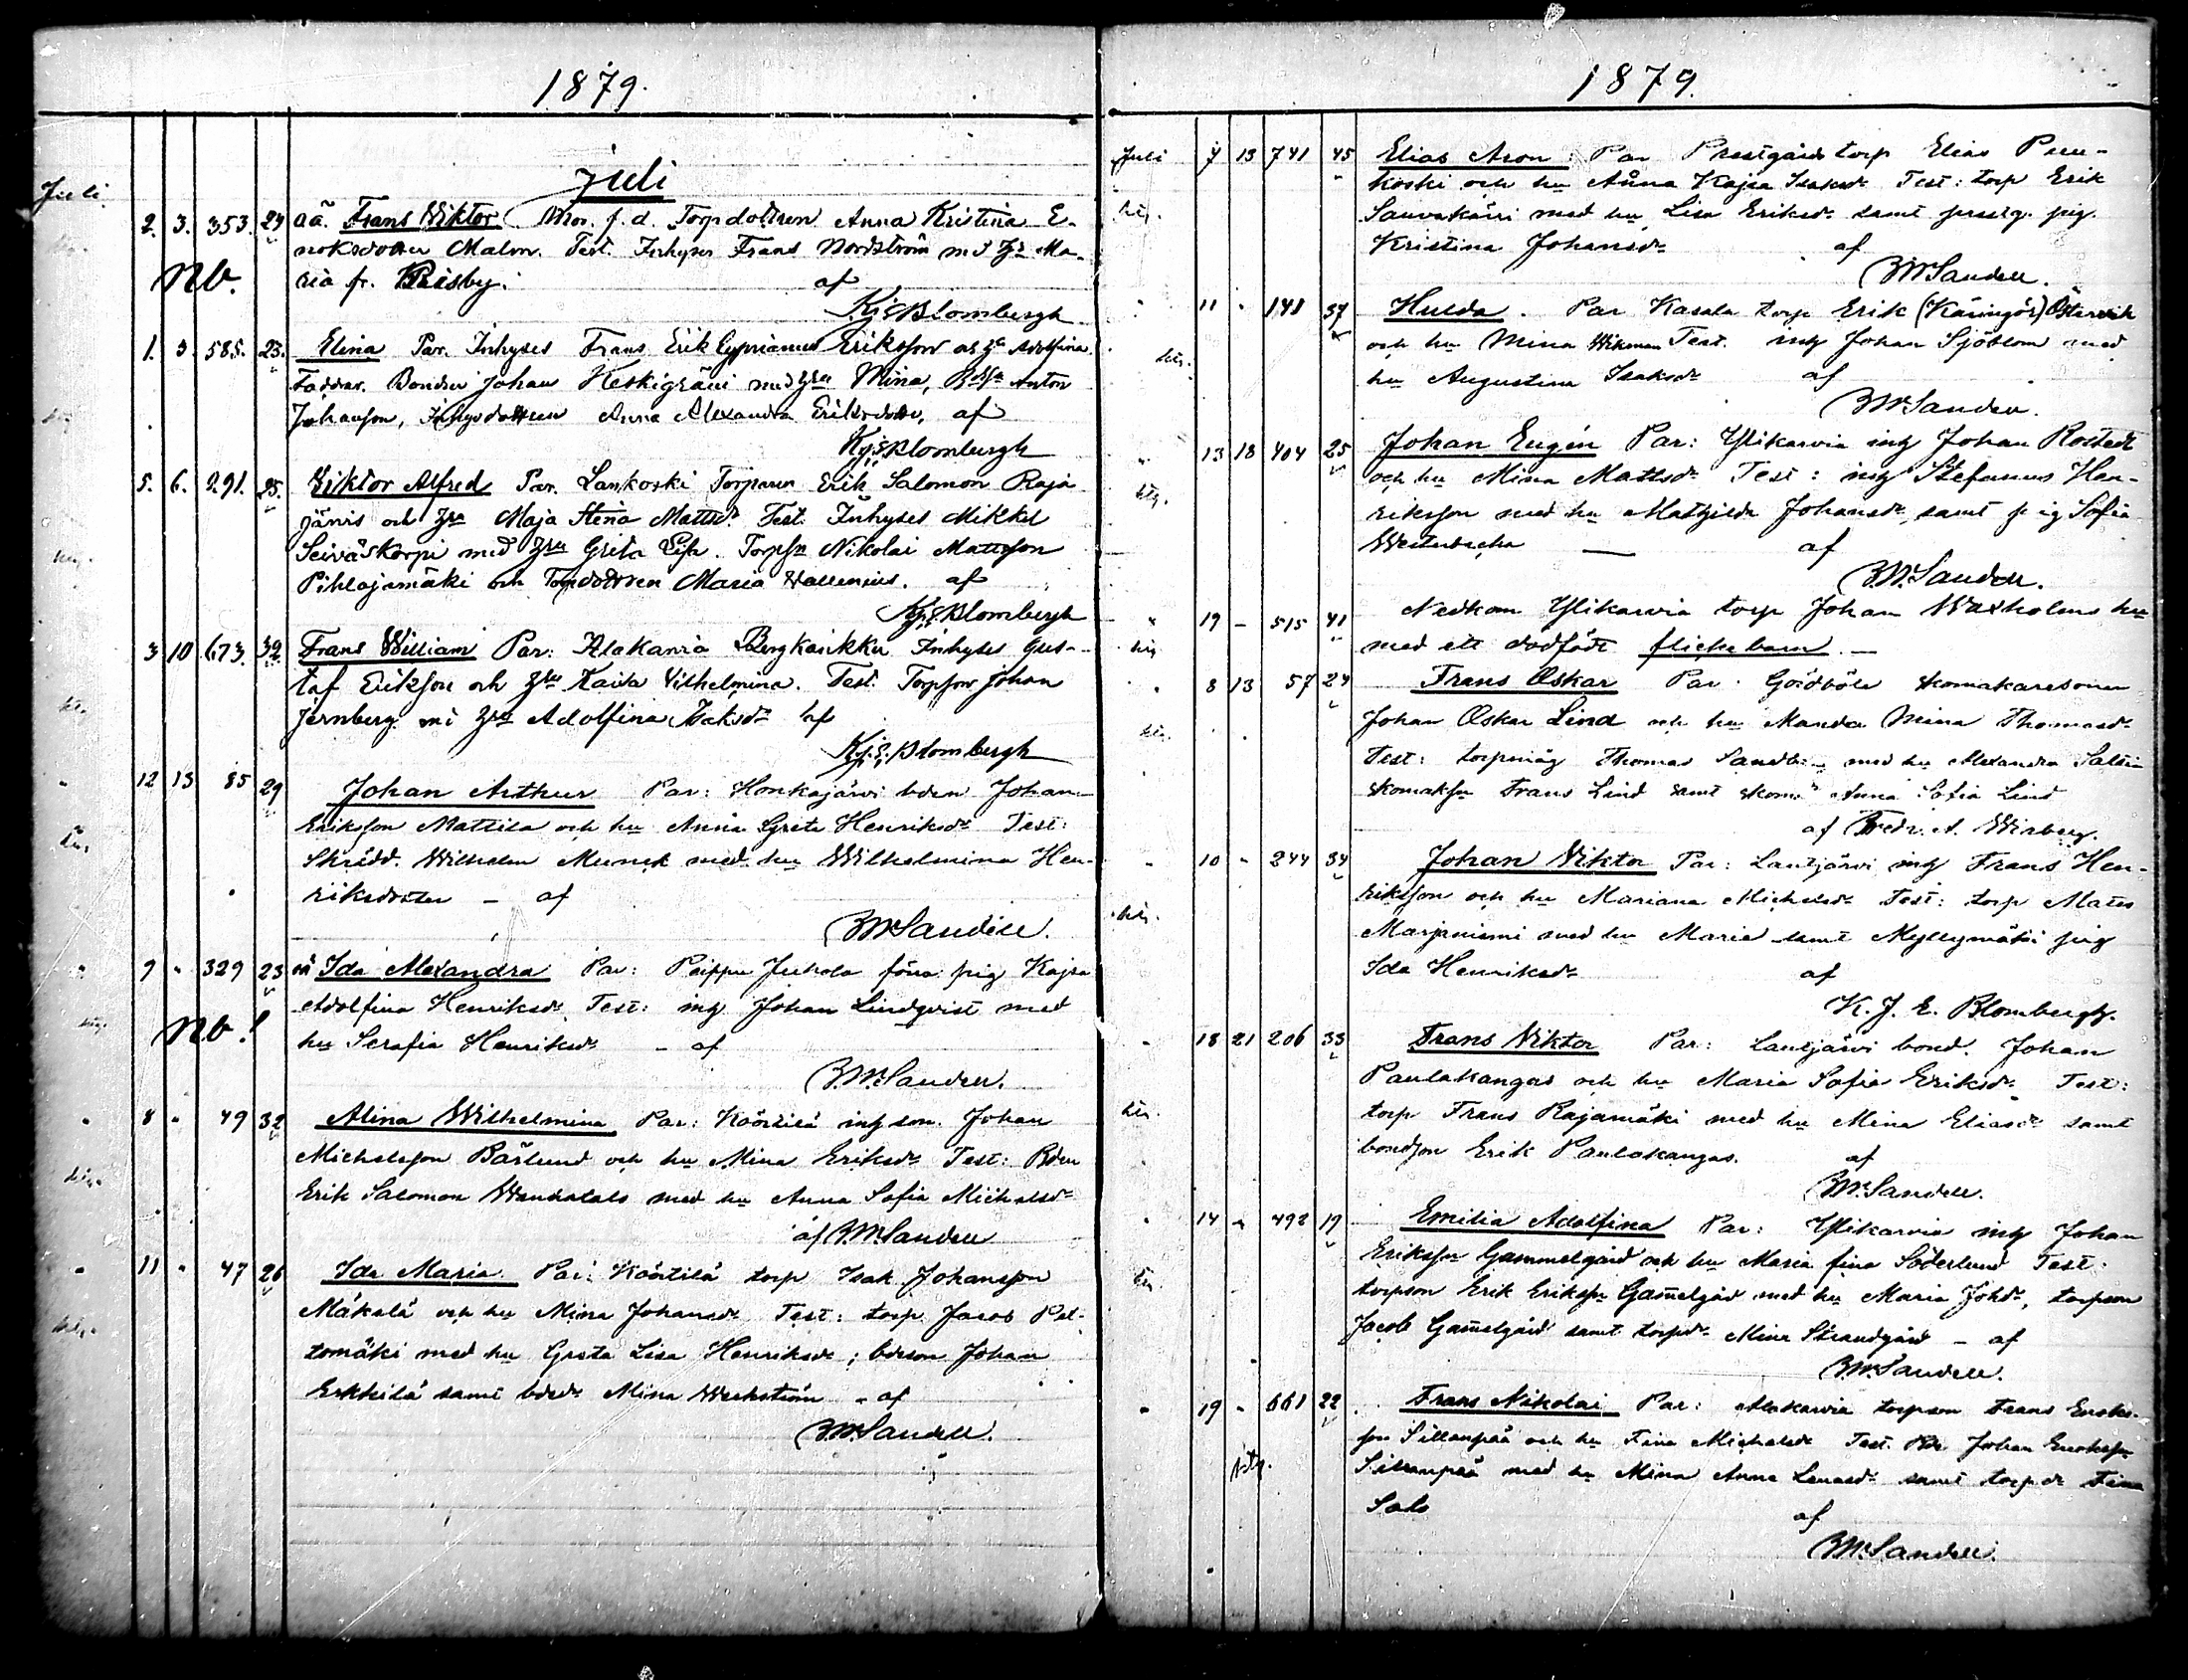 1879.
Juli
Juli.
2. 3. 353. 24 oä. Frans Wiktor Mor. f. d. Torpdottren Anna Kristina E-
noksdotter Malm. Test. Inhyses Frans Nordström md Ma-
Nb. ria fr. Risby. af
Kjs Blombergh
1. 3. 585. 23. Elina Par. Inhyses Frans Erik Cyprianus Eriksson Adolfina.
Faddrar. Bonden Johan Keskigräni med Mina, Anton
Johansson, Inhysdottren Anna Alexandra Eriksdotter, af
Kjs Blombergh
5. 6. 291. 25. Viktor Alfred Par. Lankoski Torparen Erik Salomon Raja
järvis och Maja Stena Mattsdr Test. Inhyses Mikkel
Seiväskorpi med Greta Lisa. Nikolai Mattsson
Pihlajamäki och Torpdottren Maria Wallenius. af
Kjs Blombergh
3 10 673. 32 Frans William Par: Alakarvia Inhyses Gus-
taf Eriksson och Kaisa Vilhelmina. Test. Torpson Johan
Jernberg Adolfina Isaksdr af
Kjs Blombergh
12 13 85 29 Johan Arthur Par: Honkajärvi bden Johan
Eriksson Mattila och hu Anna Greta Henriksdr Test:
Skrädd. Wilhelm Munck med hu Wilhelmina Hen-
riksdotter – af
Sandell.
9 " 329 23 oä Ida Alexandra Par: Peippu Juhola pig Kajsa
Adolfina Henriksdr, Test: ing Johan Lindqvist med
Nb! hu Serafia Henriksdr – af
Sandell.
8 " 49 32 Mina Wilhelmina Par: Köörtilä ing son Johan
Michelsson Bärlund och hu Mina Eriksdr Test: Bden
Erik Salomon med hu Anna Sofia Michelsdr
af Sandell
11 " 47 26 Ida Maria Par: Köörtilä torp Isak Johansson
Mäkelä och hu Mina Johansdr Test: torp. Jacob Pel-
tomäki med hu Greta Lisa Henriksdr; bdeson Johan
Erkkilä samt bdedr Mina Weckström – af
Sandell.
1879.
Juli 7 13 741 45 Elias Aron: Par Prestgårds torp Elias Puu-
koski och hu Anna Kajsa Isaksdr Test: torp Erik
med hu Lisa Eriksdr samt prestg. pig.
Kristina Johansdr af
Sandell.
11 " 141 37 Hulda. Par Kasala torp Erik (Käringör) Österwik
och hu Mina Wikman Test. ing Johan Sjöblom med
hu Augustina Isaksdr af
Sandell.
13 18 404 25 Johan Eugén Par: Ylikarvia ing Johan Rostedt
och hu Mina Mattsdr Test: ing Stefanus Hen-
riksson med hu Mathilda Johansdr, samt pig Sofia
Westerbacka — af
Sandell.
19 – 515 41 Nedkom Ylikarvia torp Johan Waxholms hu
med ett dödfödt flickebarn. —
8 13 57 24 Frans Oskar Par: Gårdböle skomakaresonen
Johan Oskar Lind och hu Manda Mina Thomasdr
Test: torpmåg Thomas med hu Alexandra
Frans Lind samt Anna Sofia Lind
af Fredr. A. Wirberg.
10 " 244 34 Johan Viktor Par: Lautjärvi ing Frans Hen-
riksson och hu Mariana Michelsdr Test: torp Matts
Marjaniemi med hu Maria samt Myllymäki pig
Ida Henriksdr af
K. J. E. Blombergh.
18 21 206 33 Frans Viktor Par: Lautjärvi bond. Johan
Paulakangas och hu Maria Sofia Eriksdr Test:
torp Frans Rajamäki med hu Mina Eliasdr samt
bondson Erik Paulakangas. af
Sandell.
14 " 492 19 Emilia Adolfina Par: Ylikarvia ing Johan
Eriksson Gammelgård och hu Maria fina Söderlund Test:
torpson Erik Eriksson Gamelgård med hu Maria Johdr, torpson
Jacob Gamelgård samt torpdr Mina Strandgård – af
Sandell.
19 " 661 22 Frans Nikolai Par: Alakarvia torpson Frans Enoks-
son Sillanpää och hu Fina Michelsdr Test. Johan Enoksson
Sillanpää med hu Mina Anna Lenasdr samt torpdr Fina
Salo af
Sandell.